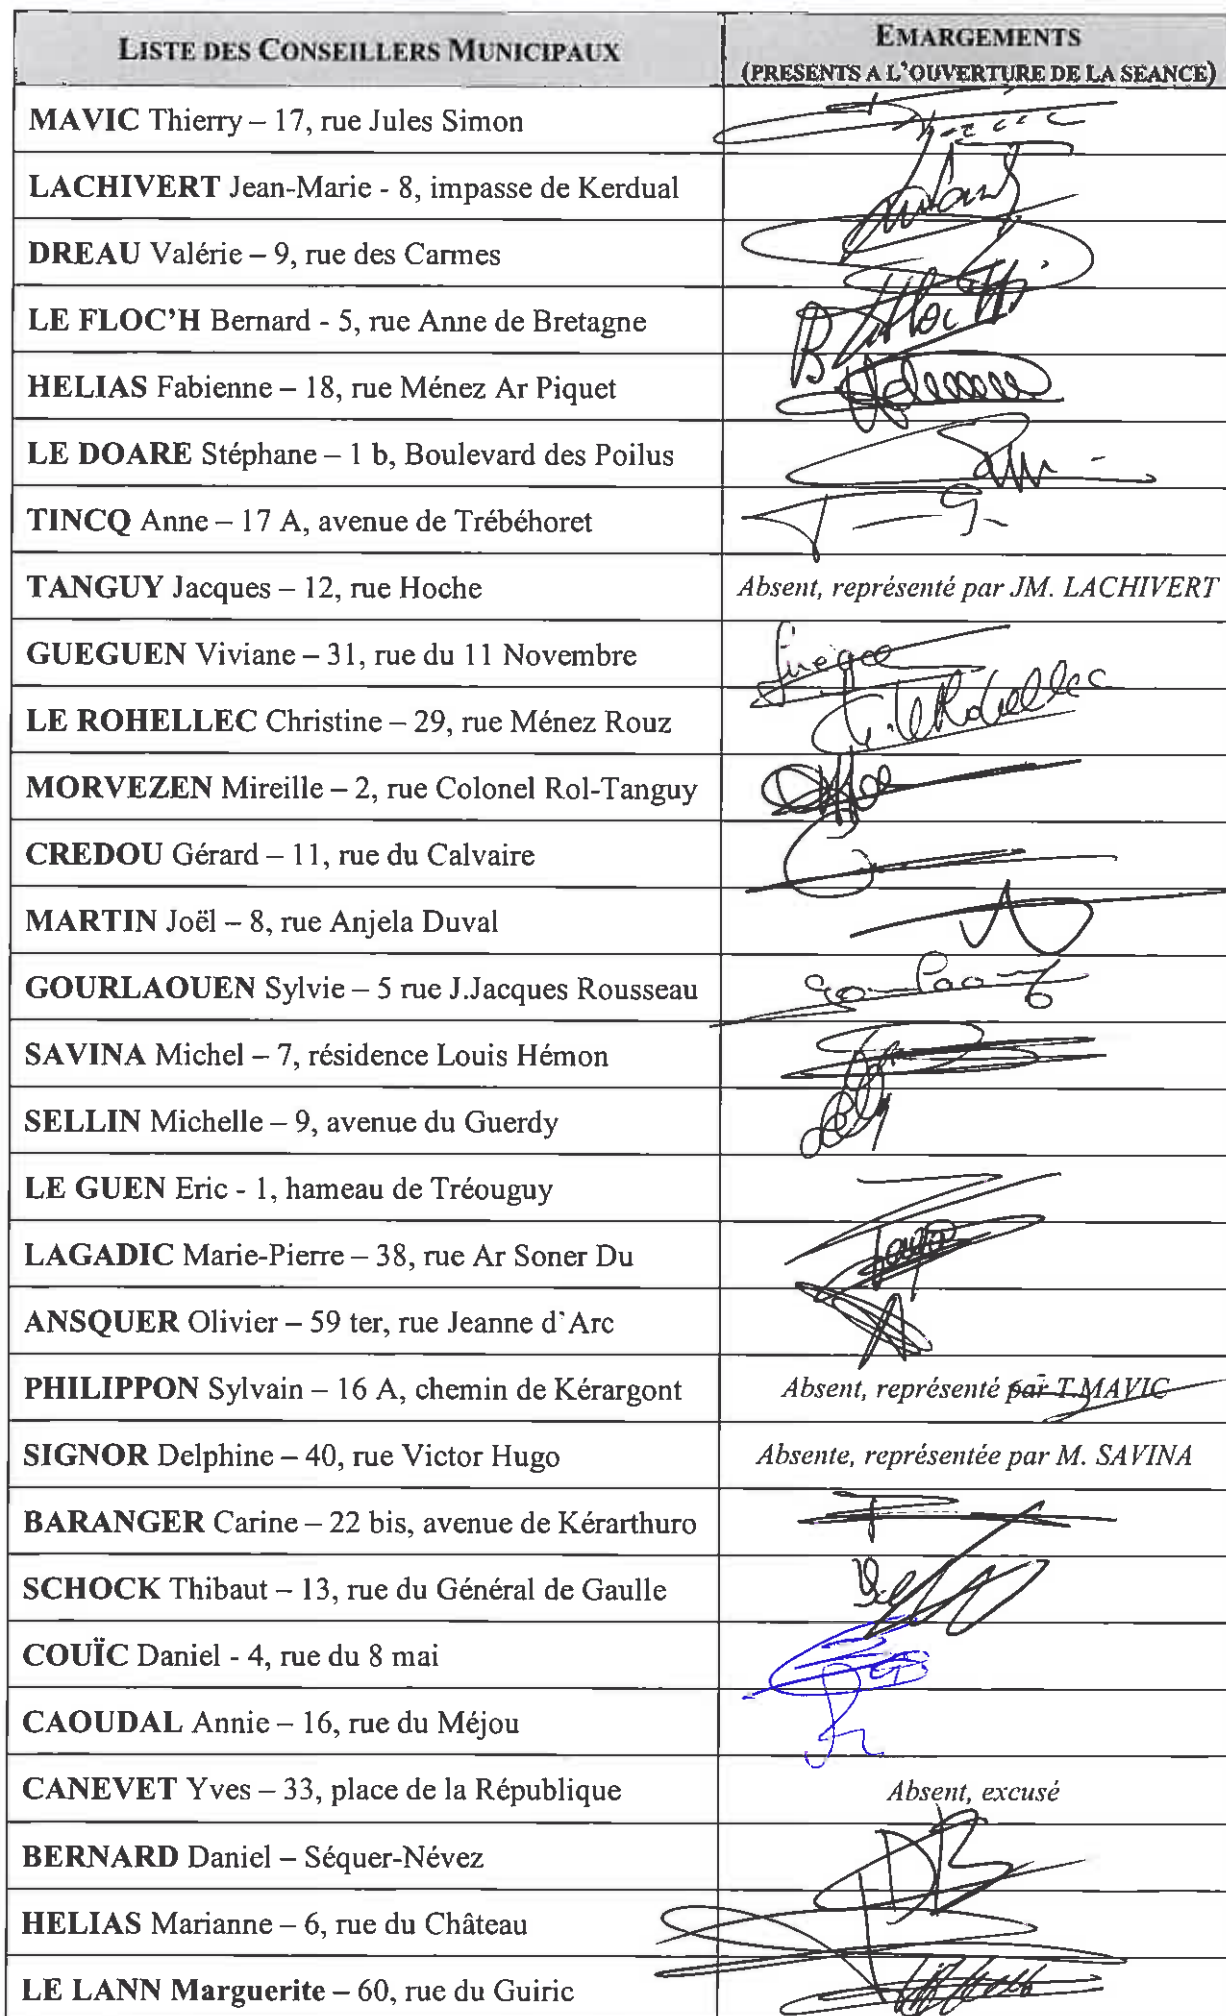 LISTE DES CONSEILLERS MUNICIPAUX
EMARGEMENTS
(PRESENTS A L'OUVERTURE DE LA SEANCE)
MAVIC Thierry – 17, rue Jules Simon
LACHIVERT Jean-Marie - 8, impasse de Kerdual
DREAU Valérie – 9, rue des Carmes
LE FLOC'H Bernard - 5, rue Anne de Bretagne
HELIAS Fabienne – 18, rue Ménez Ar Piquet
LE DOARE Stéphane – 1 b, Boulevard des Poilus
TINCQ Anne – 17 A, avenue de Trébéhoret
TANGUY Jacques – 12, rue Hoche
Absent, représenté par JM. LACHIVERT
GUEGUEN Viviane – 31, rue du 11 Novembre
LE ROHELLEC Christine – 29, rue Ménez Rouz
MORVEZEN Mireille – 2, rue Colonel Rol-Tanguy
CREDOU Gérard – 11, rue du Calvaire
MARTIN Joël – 8, rue Anjela Duval
GOURLAOUEN Sylvie – 5 rue J.Jacques Rousseau
SAVINA Michel – 7, résidence Louis Hémon
SELLIN Michelle – 9, avenue du Guerdy
LE GUEN Eric - 1, hameau de Tréouguy
LAGADIC Marie-Pierre – 38, rue Ar Soner Du
ANSQUER Olivier – 59 ter, rue Jeanne d'Arc
PHILIPPON Sylvain – 16 A, chemin de Kérargont
Absent, représenté par T.MAVIC
SIGNOR Delphine – 40, rue Victor Hugo
Absente, représentée par M. SAVINA
BARANGER Carine – 22 bis, avenue de Kérarthuro
SCHOCK Thibaut – 13, rue du Général de Gaulle
COUÏC Daniel - 4, rue du 8 mai
CAOUDAL Annie – 16, rue du Méjou
CANEVET Yves – 33, place de la République
Absent, excusé
BERNARD Daniel – Séquer-Névez
HELIAS Marianne – 6, rue du Château
LE LANN Marguerite – 60, rue du Guiric